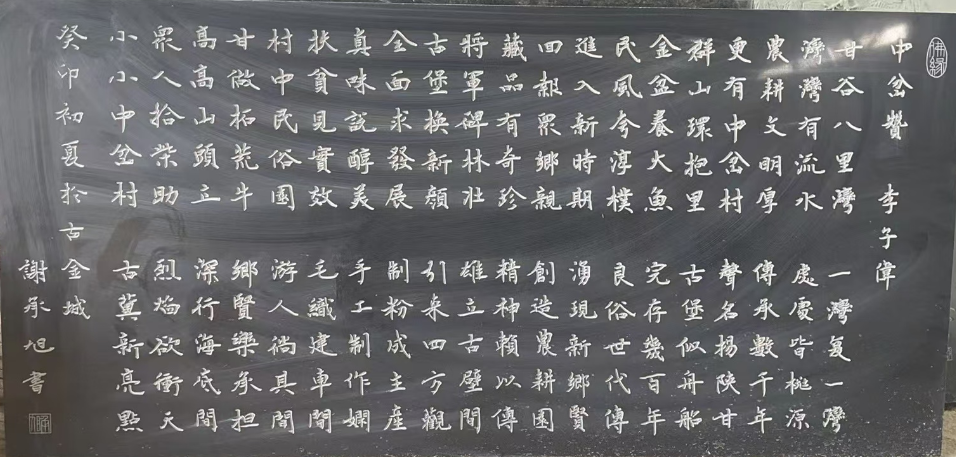 佛緣
中岔贊 李子偉
甘谷八里灣 一灣复一灣
灣灣有流水 處處皆桃源
農耕文明厚 傳承數千年
更有中岔村 聲名揚陝甘
群山環抱里 古堡似舟船
金盆養火魚 完存幾百年
民風今淳樸 良俗世代傳
進入新時期 湧現新鄉賢
回報衆鄉親 創造農耕園
藏品有奇珍 精神賴以傳
將軍碑林壯 雄立古壁間
古堡換新顏 引來四方觀
全面求發展 制粉成主産
真味說醇美 手工制作嫻
扶貧見實效 毛織建車間
村中民俗園 游人徜其間
甘做拓荒牛 鄉賢樂承担
高高山頭立 深行海底間
衆人拾柴助 烈焰欲衝天
小小中岔村 古冀新亮點
癸卯初夏於古金城
謝承旭書